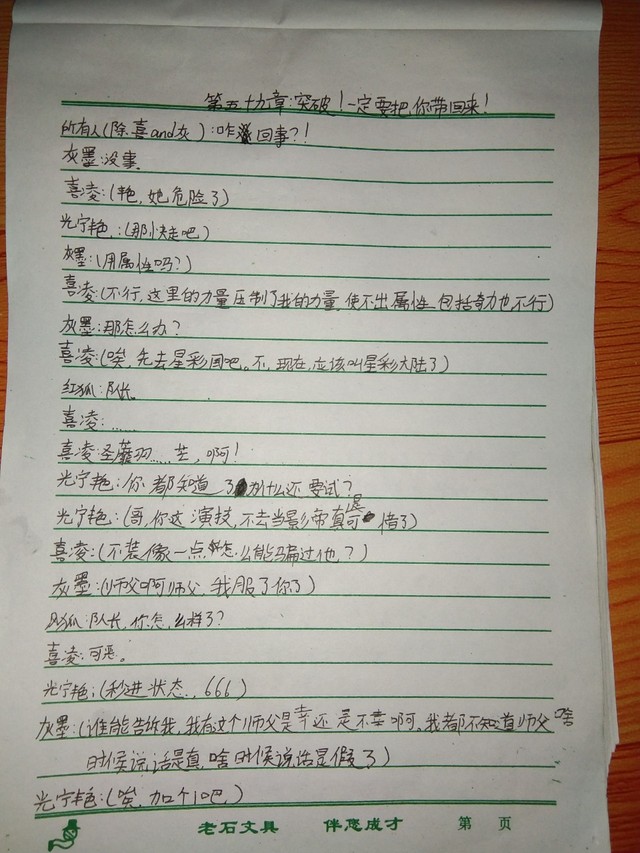 第五十九章:突破!一定要把你带回来!
所有人(除喜and灰):咋回事?!
灰墨:没事
喜凌:(艳,她危险了)
光宁艳:(那快走吧)
灰墨:(用属性吗?)
喜凌:(不行,这里的力量压制了我的力量,使不出属性,包括奇力也不行)
灰墨:那怎么办?
喜凌:(唉,先去星彩国吧。不,现在,应该叫星彩大陆了)
红狐:队长。
喜凌:……
喜凌:圣蘼羽……芒,啊!
光宁艳:你都知道了为什么还要试?
光宁艳:(哥,你这演技,不去当影帝真是可惜了)
喜凌:(不装像一点怎么能骗过他?)
灰墨:(师父啊师父,我服了你了)
红狐:队长,你怎么样了?
喜凌:可恶。
光宁艳:(秒进状态..666)
灰墨:(谁能告诉我,我有这个师父是幸还是不幸啊。我都不知道师父啥
时候说话是真,啥时候说话是假了)
光宁艳:(唉,加个1吧)
老石文具 伴您成才 第 页